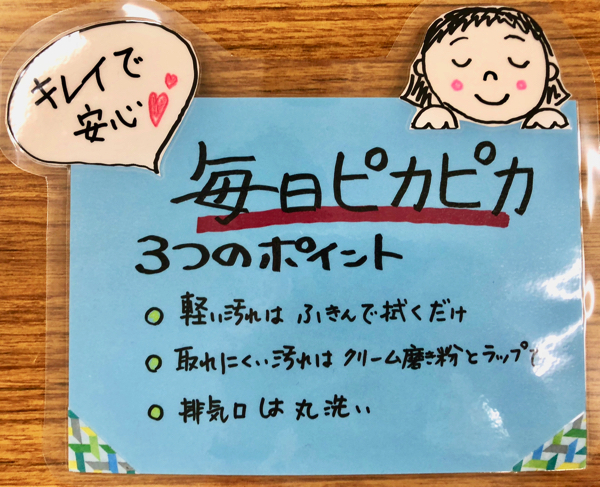 キレイで
安心
毎日ピカピカ
3つのポイント
軽い汚れは ふきんで拭くだけ
取れにくい汚れは クリーム磨き粉とラップで
排気口は丸洗い